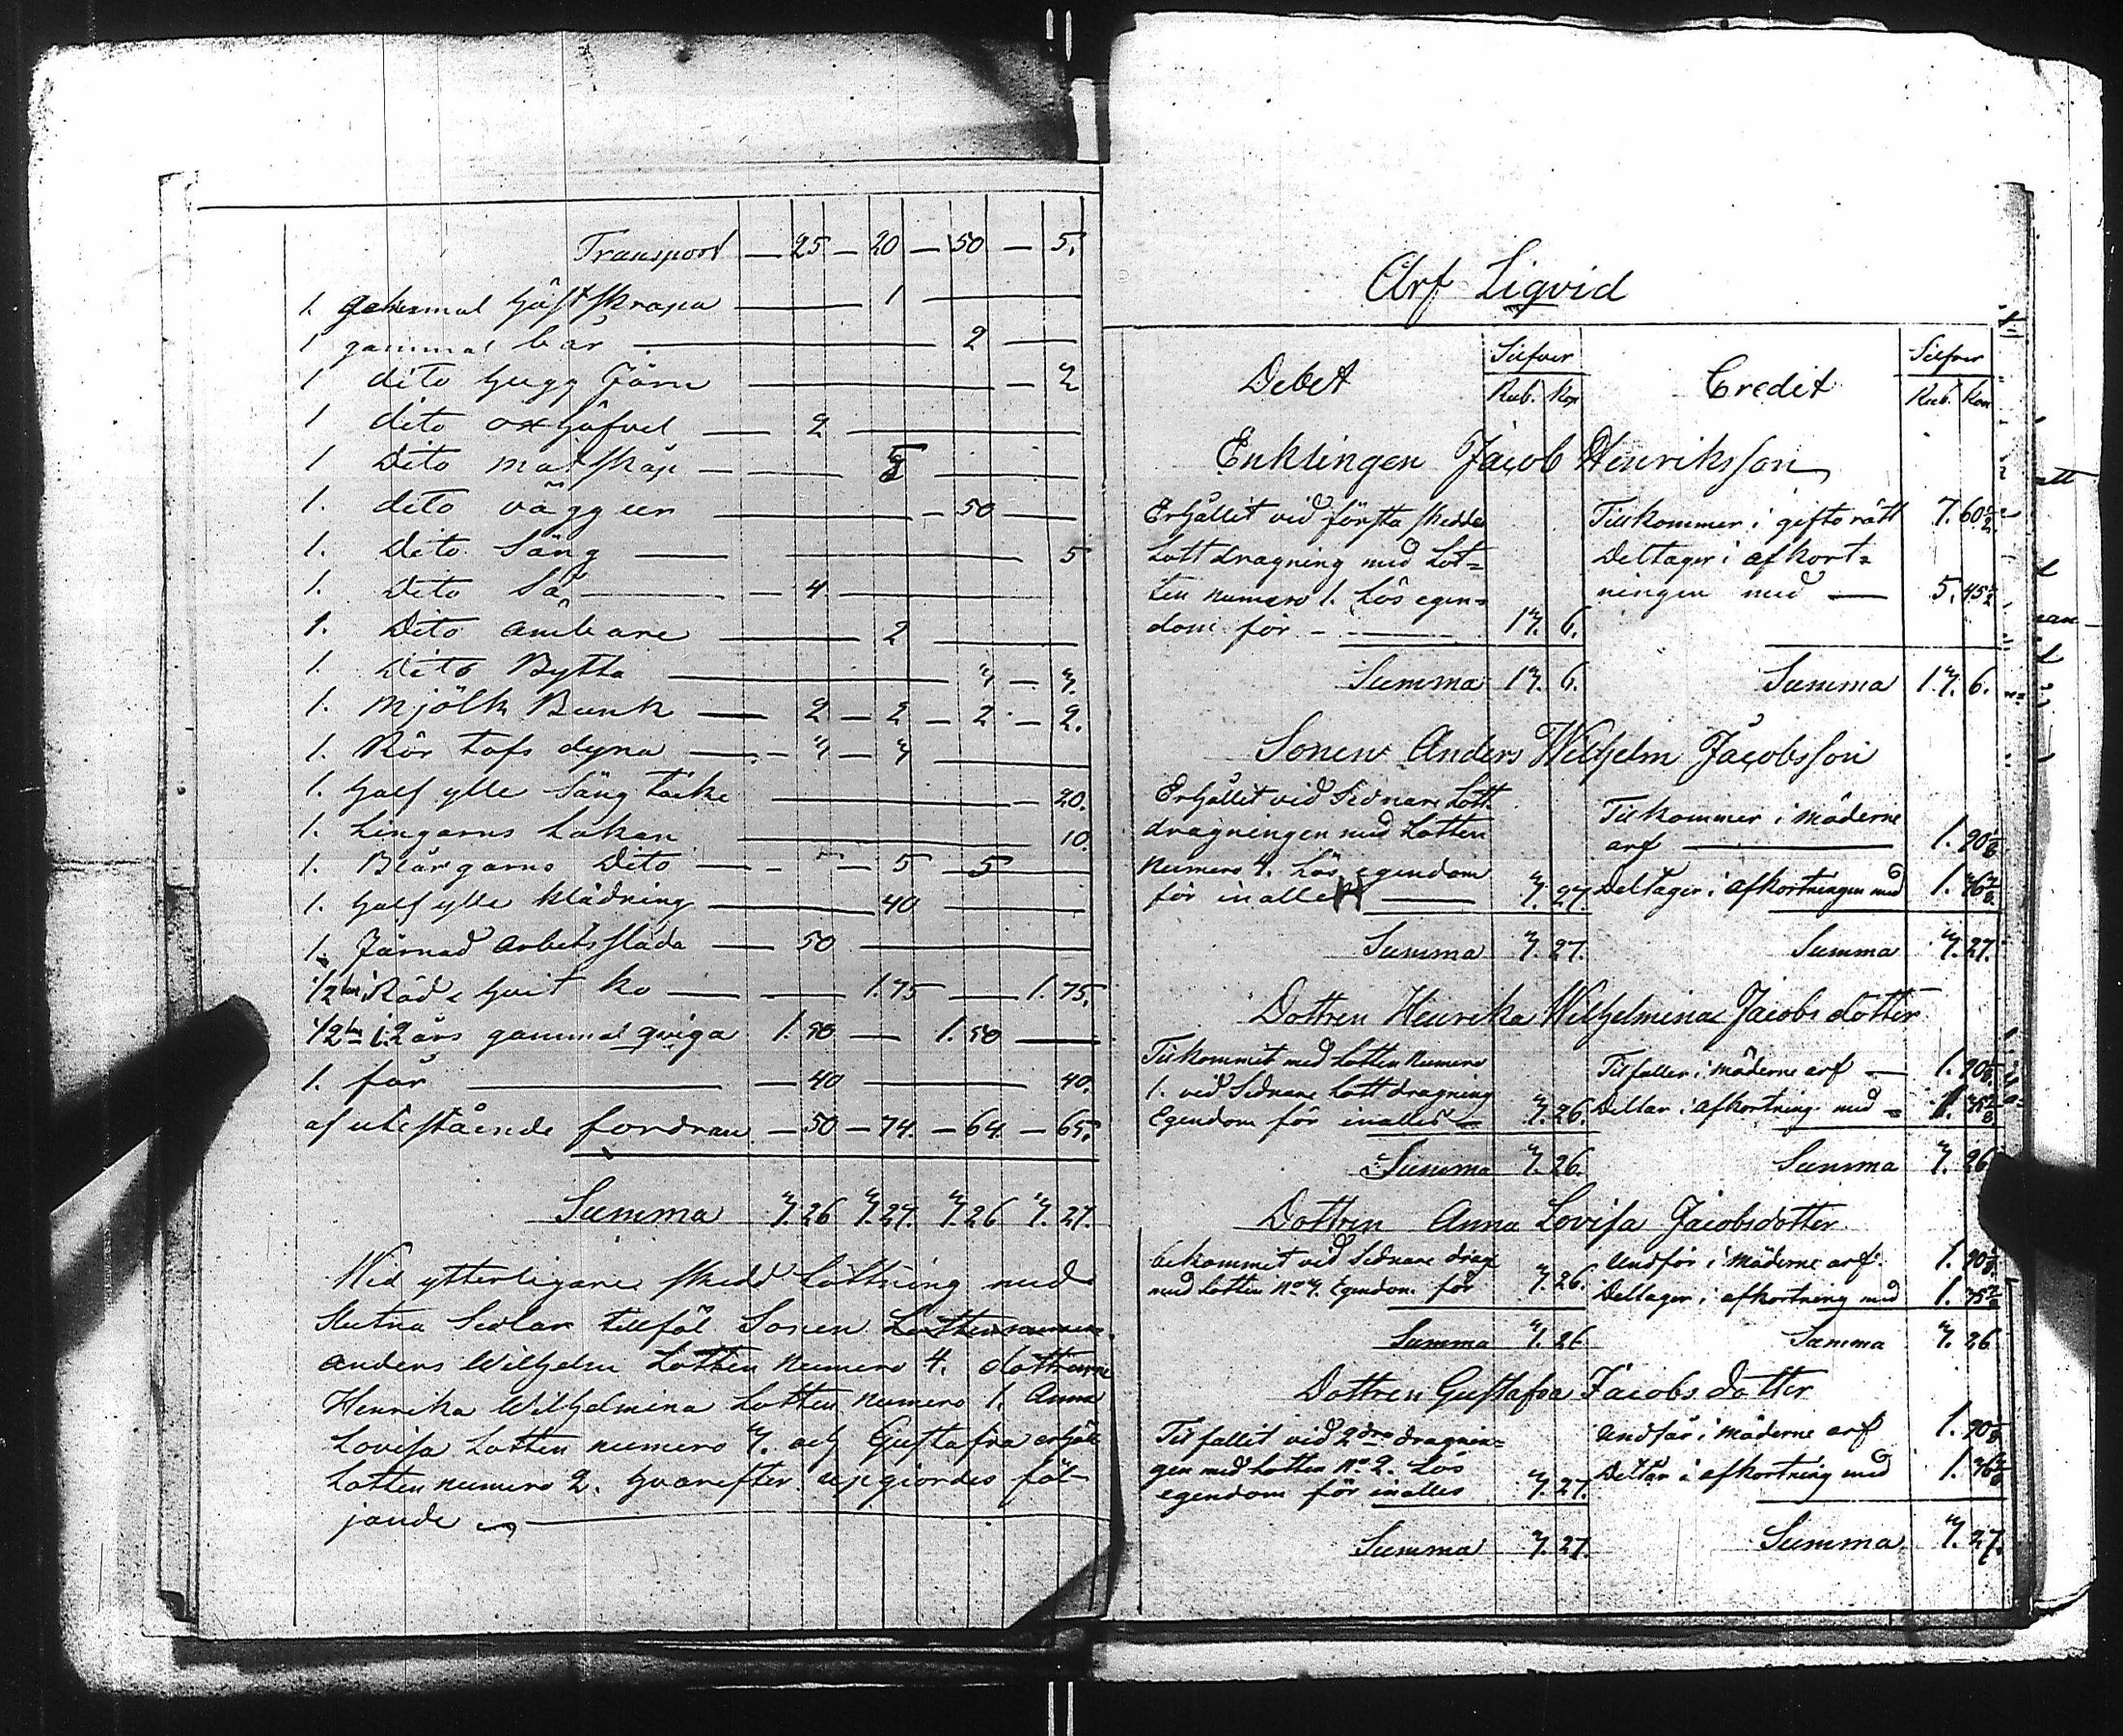 Transport — 25 — 20 — 50 — 5.
1. gammal häst skrapa — 1 —
1 gammal bår — 2 —
1 dito hugg Järn — 2
1 dito oxhäfvel — 2 —
1 Dito matskåp — 5 —
1. dito väggur — 50 —
1. Dito Säng — 5
1. Dito Så — 4 —
1. Dito ämbare — 2 —
1. Dito Bytta — 7 — 7.
1. Mjölk Bunk — 2 — 2 — 2 — 2.
1. Rör tofs dyna — 7 — 7 —
1. half ylle Säng täcke — 20.
1. Lingarns Lakan — 10.
1. Blårgarns Dito — 5 5
1. half ylle klädning — 40 —
1. Järnad arbetssläda — 50 —
1/2 i Röd hvit ko — 1.75 — 1.75.
1/2 i 1. 2 års gammal qviga 1.50 — 1.50 —
1. får — 40 — 40.
af utestående fordran — 50 — 74. — 64 — 65.
Summa 7.26 7.27. 7.26 7.27.
Wid ytterligare skedd Lottning med
slutna Sedlar tillföl Sonen
Anders Wilhelm Lotten numero 4. döttrarne
Henrika Wilhelmina Lotten numero 1. Anna
Lovisa Lotten numero 7. och Gustafva erhöll
Lotten numero 2. hvarefter upgiordes föl-
jande
Arf Liqvid
Debet Silfver Rub. Kop Credit Silfver Rub. Kop
Enklingen Jacob Henriksson
Erhållit vid första skedde
Lottdragning med Lot=
ten numero 1. Lös egen=
dom för — 17. 6.
Tillkommer i giftorätt 7. 60 1/2
Deltager i afkort=
ningen med — 5. 45 1/2
Summa 17. 6. Summa 17. 6.
Sonen Anders Wilhelm Jacobsson
Erhållit vid Sednare Lott
dragningen med Lotten
Numero 4. Lös egendom
för inalles — 7. 27.
Tillkommer i möderne
arf — 1. 90
Deltager i afkortningen med 1.
Summa 7. 27. Summa 7. 27.
Dottren Henrika Wilhelmina Jacobsdotter
Tillkommit med Lotten numero
1. vid Sednare Lottdragning
Egendom för inalles 7. 26.
Tillfaller i möderne arf — 1. 90
Deltar i afkortning med 1.
Summa 7. 26. Summa 7. 26
Dottren Anna Lovisa Jacobsdotter
bekommit vid Sednare drag
med Lotten No 7. Egendom för 7. 26.
Undfår i Möderne arf. 1. 90
Deltager i afkortning med 1.
Summa 7. 26 Summa 7. 26
Dottren Gustafva Jacobsdotter
Tillfallit vid 2dra dragnin=
gen med Lotten No 2. Lös
egendom för inalles 7. 27.
Undfår i Möderne arf 1. 90
Deltar i afkortning med 1.
Summa 7. 27. Summa 7. 27.